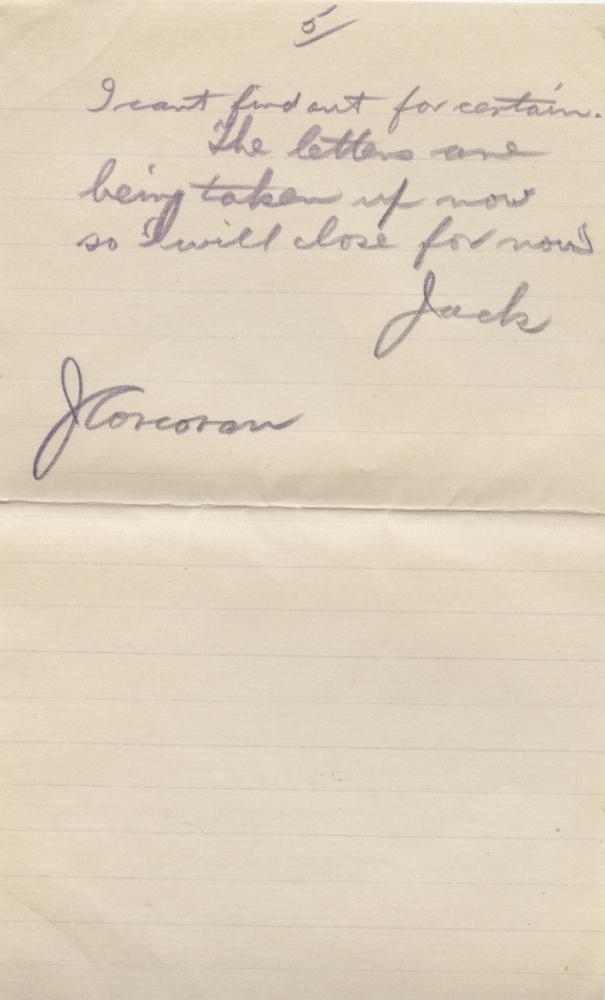 5/
I cant find out for certain.
The letters are
being taken up now
so I will close for now
Jack
J Corcoran